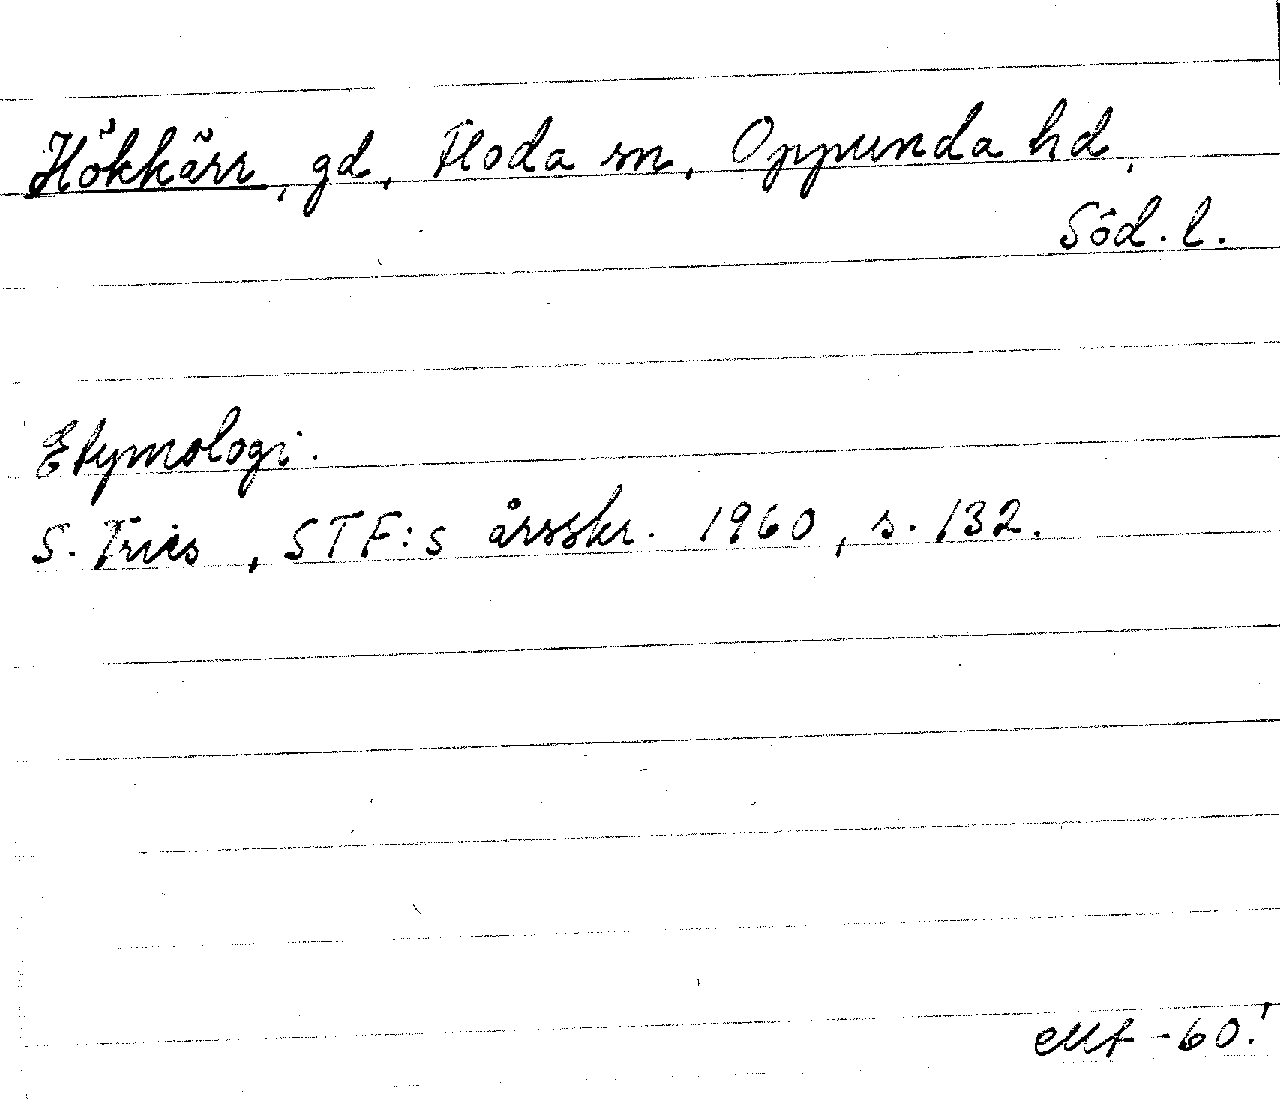 Hökkärr, gd, Floda sn, Oppunda hd,
Söd. l.
Etymologi.
S. Fries, STF:s årsskr. 1960, s. 132.
-60.